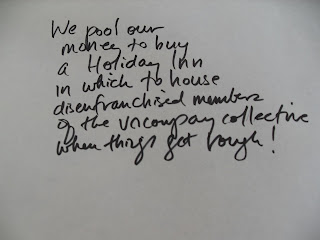 We pool our
money to buy
a Holiday Inn
in which to house
disenfranchised members
of the uncompany collective
when things get rough!